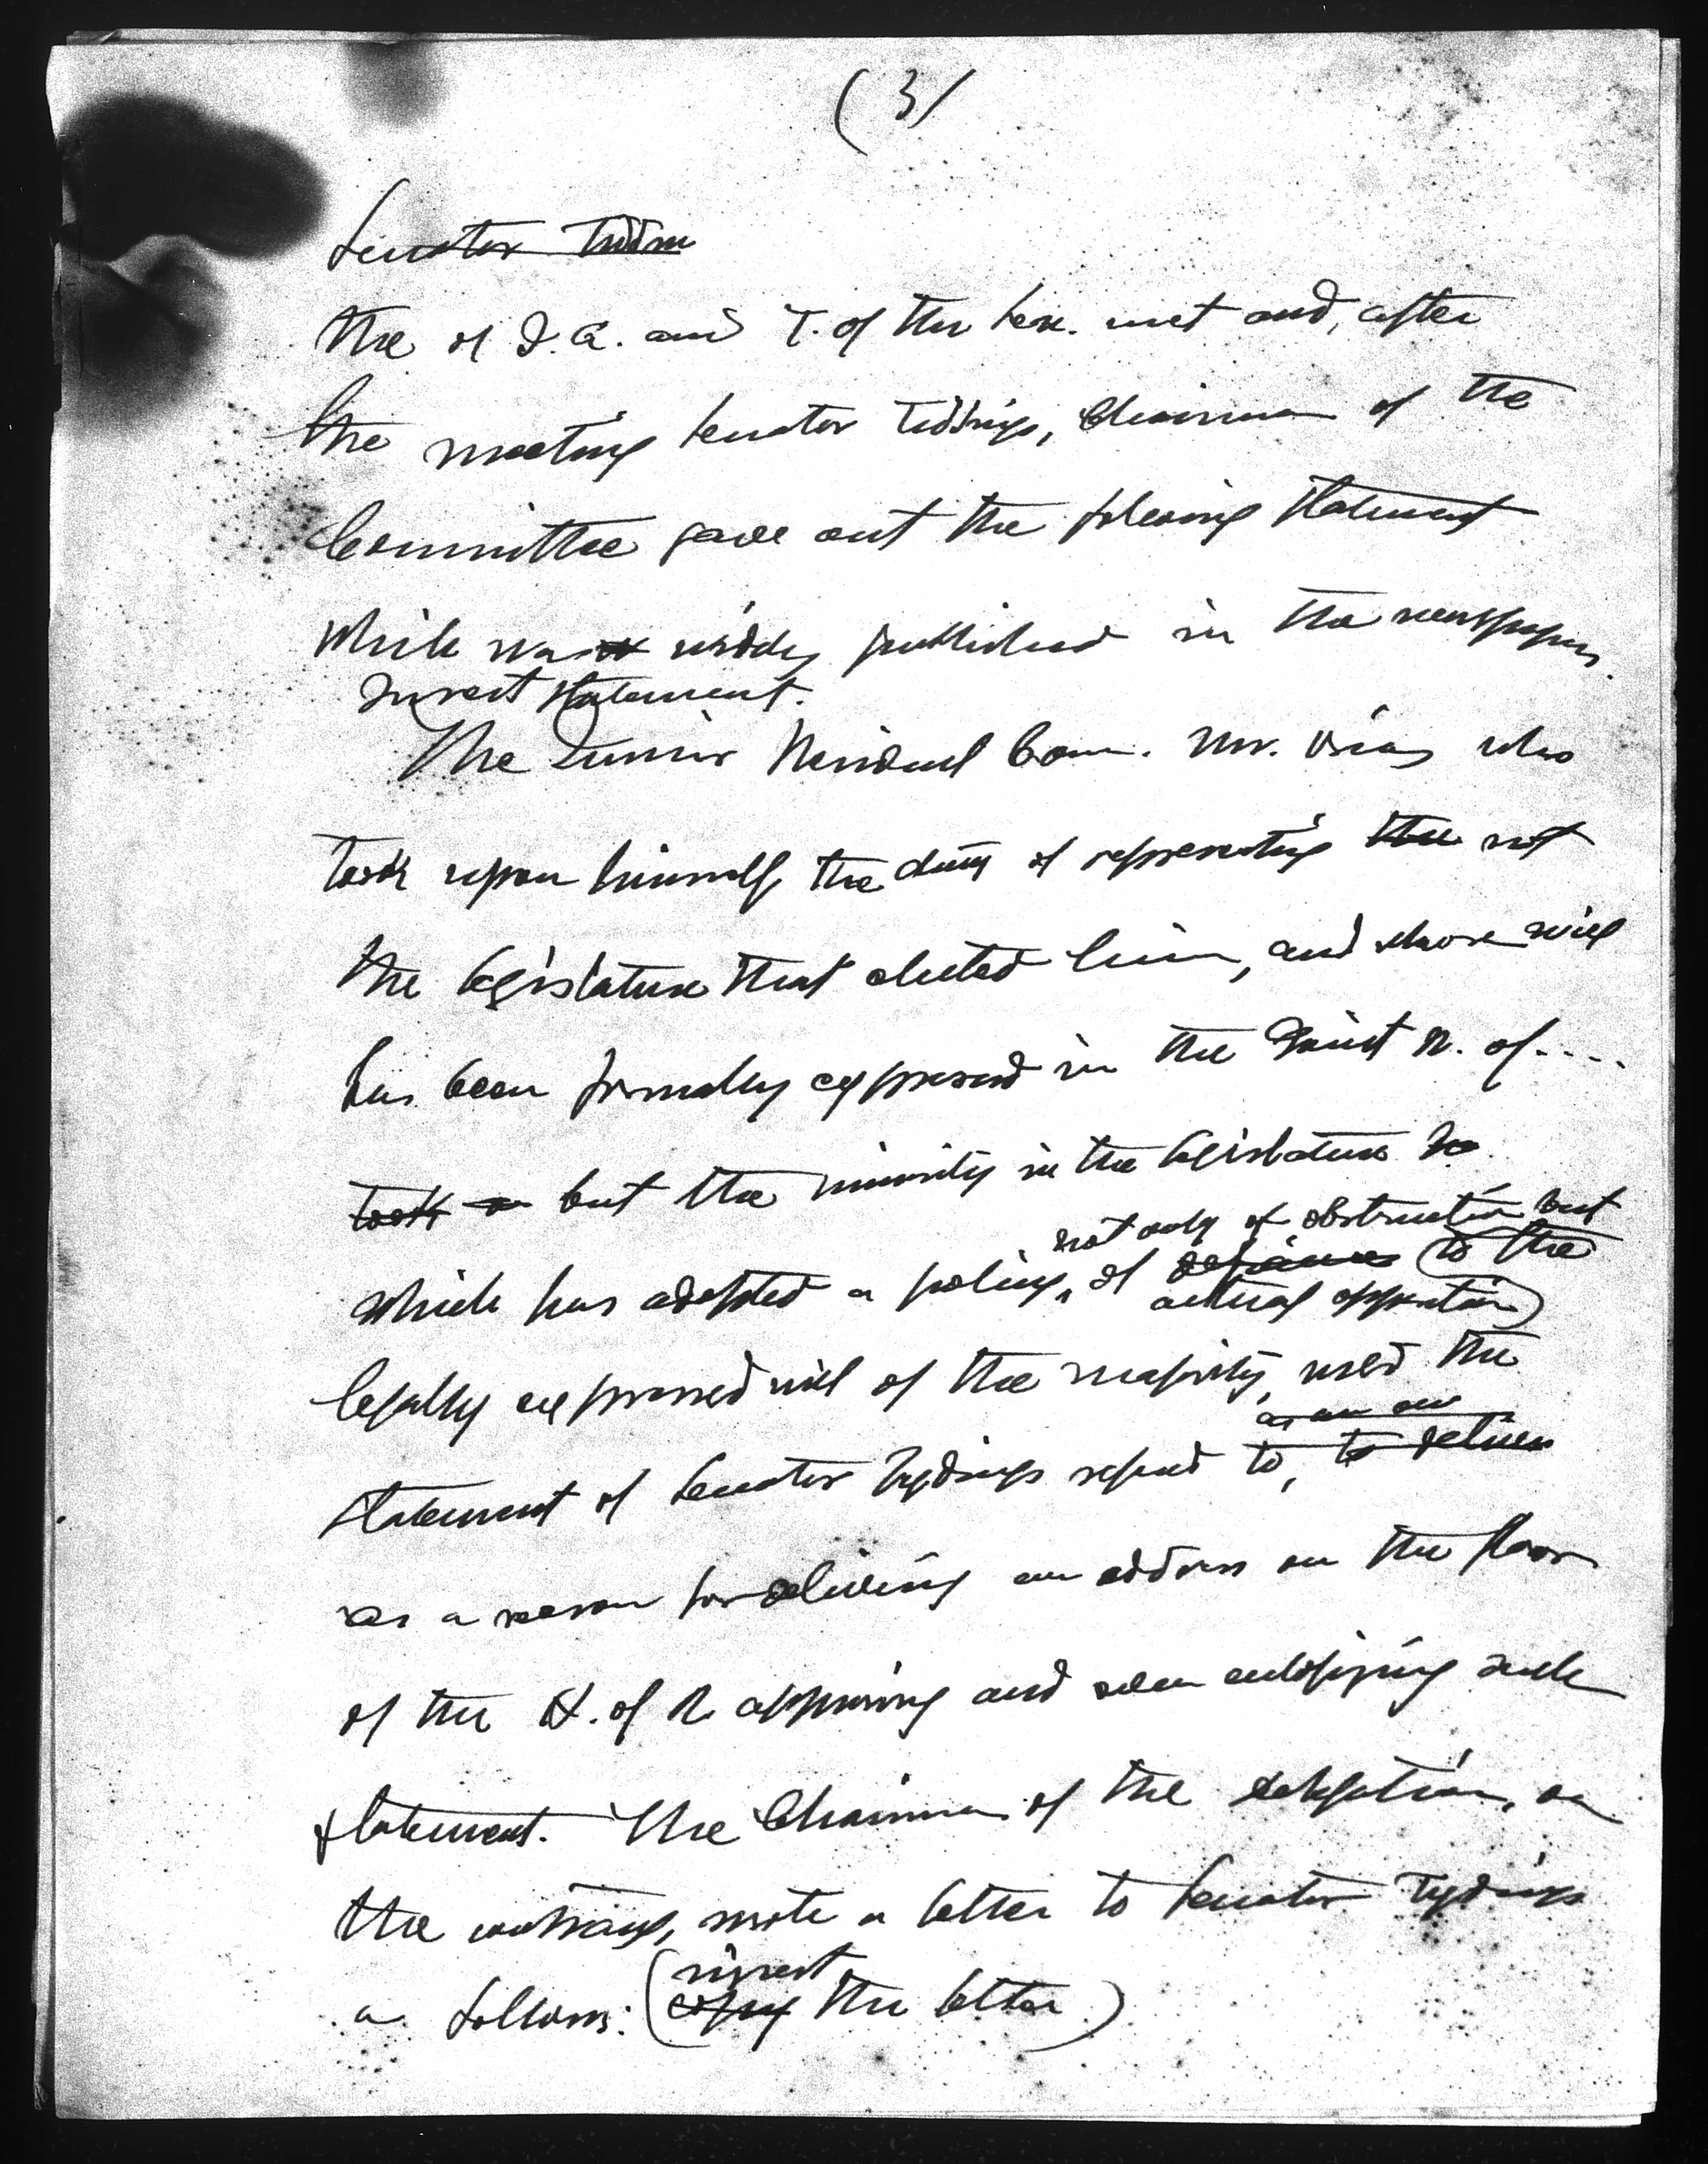 (3)
Senator Tiddin
The of I. A. and T. of the Sen. met and, after
the meeting Senator Tiddings, Chairman of the
Committee gave out the following statement
which was widely published in the newspapers.
Insert statement.
The Junior Resident Com. Mr. Osias who
took upon himself the duty of representing the not
the legislature that elected him, and whose will
has been formally expressed in the Joint R. of ....
took but the minority in the legislature
not only of obstruction but
which has adopted a policy, of defiance to the
actual opposition
legally expressed will of the majority, used the
as an
statement of Senator Tydings referred to, to deliver
as a reason for delivering an address on the floor
of the H. of R. approving and even eulogizing such
statement. The Chairman of the delegation, on
the contrary, wrote a letter to Senator Tydings
as follows: (insert
copy the letter)